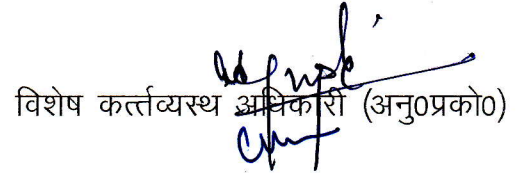 विशेष कर्त्तव्यस्थ अधिकारी (अनु0प्रको0)